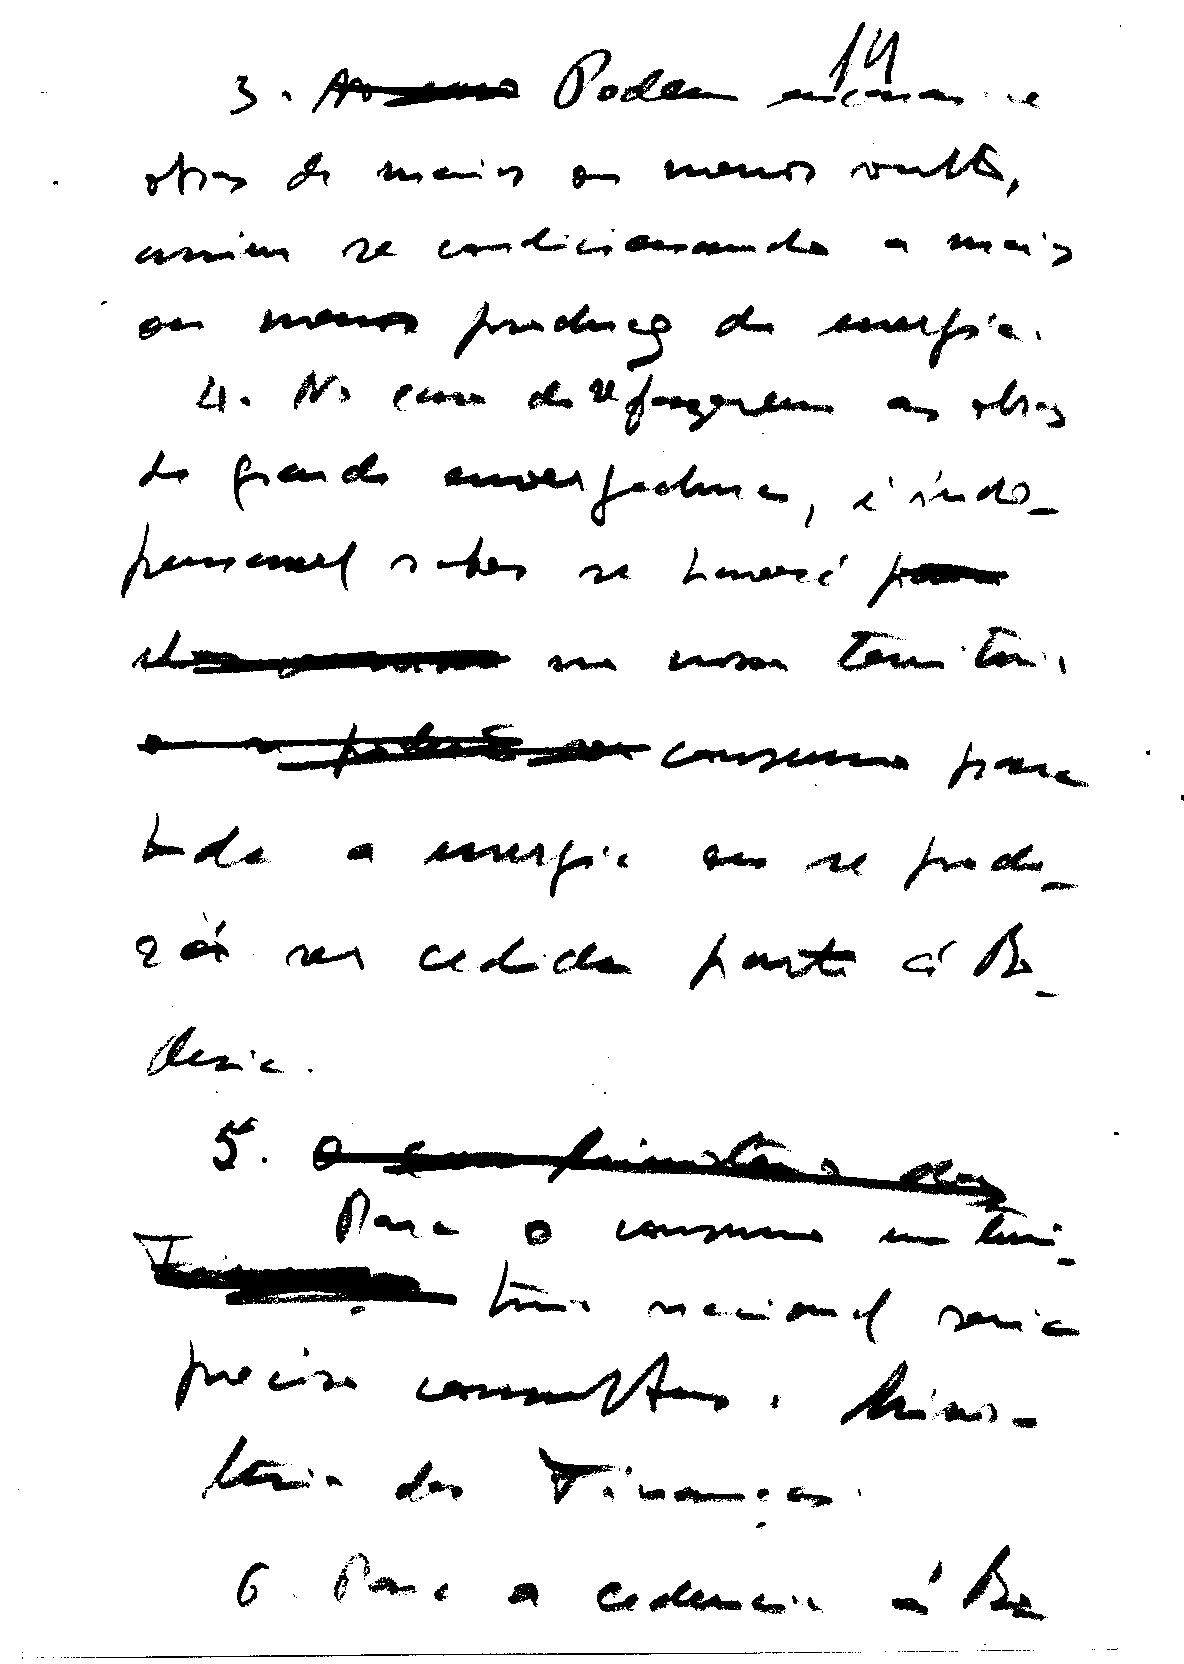 14
3. Podem encarar-se
obras de maior ou menor vulto,
assim se condicionando a mais
ou menos produção de energia.
4. No caso de se fazerem as obras
de grande envergadura, é indis-
pensavel saber se haverá
no nosso territorio
consumo para
toda a energia ou se pode-
rá ser cedida parte á Ro-
desia.
5. O Ministerio das
Para o consumo em terri-
torio nacional seria
preciso consultar o Minis-
terio das Finanças.
6. Para a cedencia á Ro